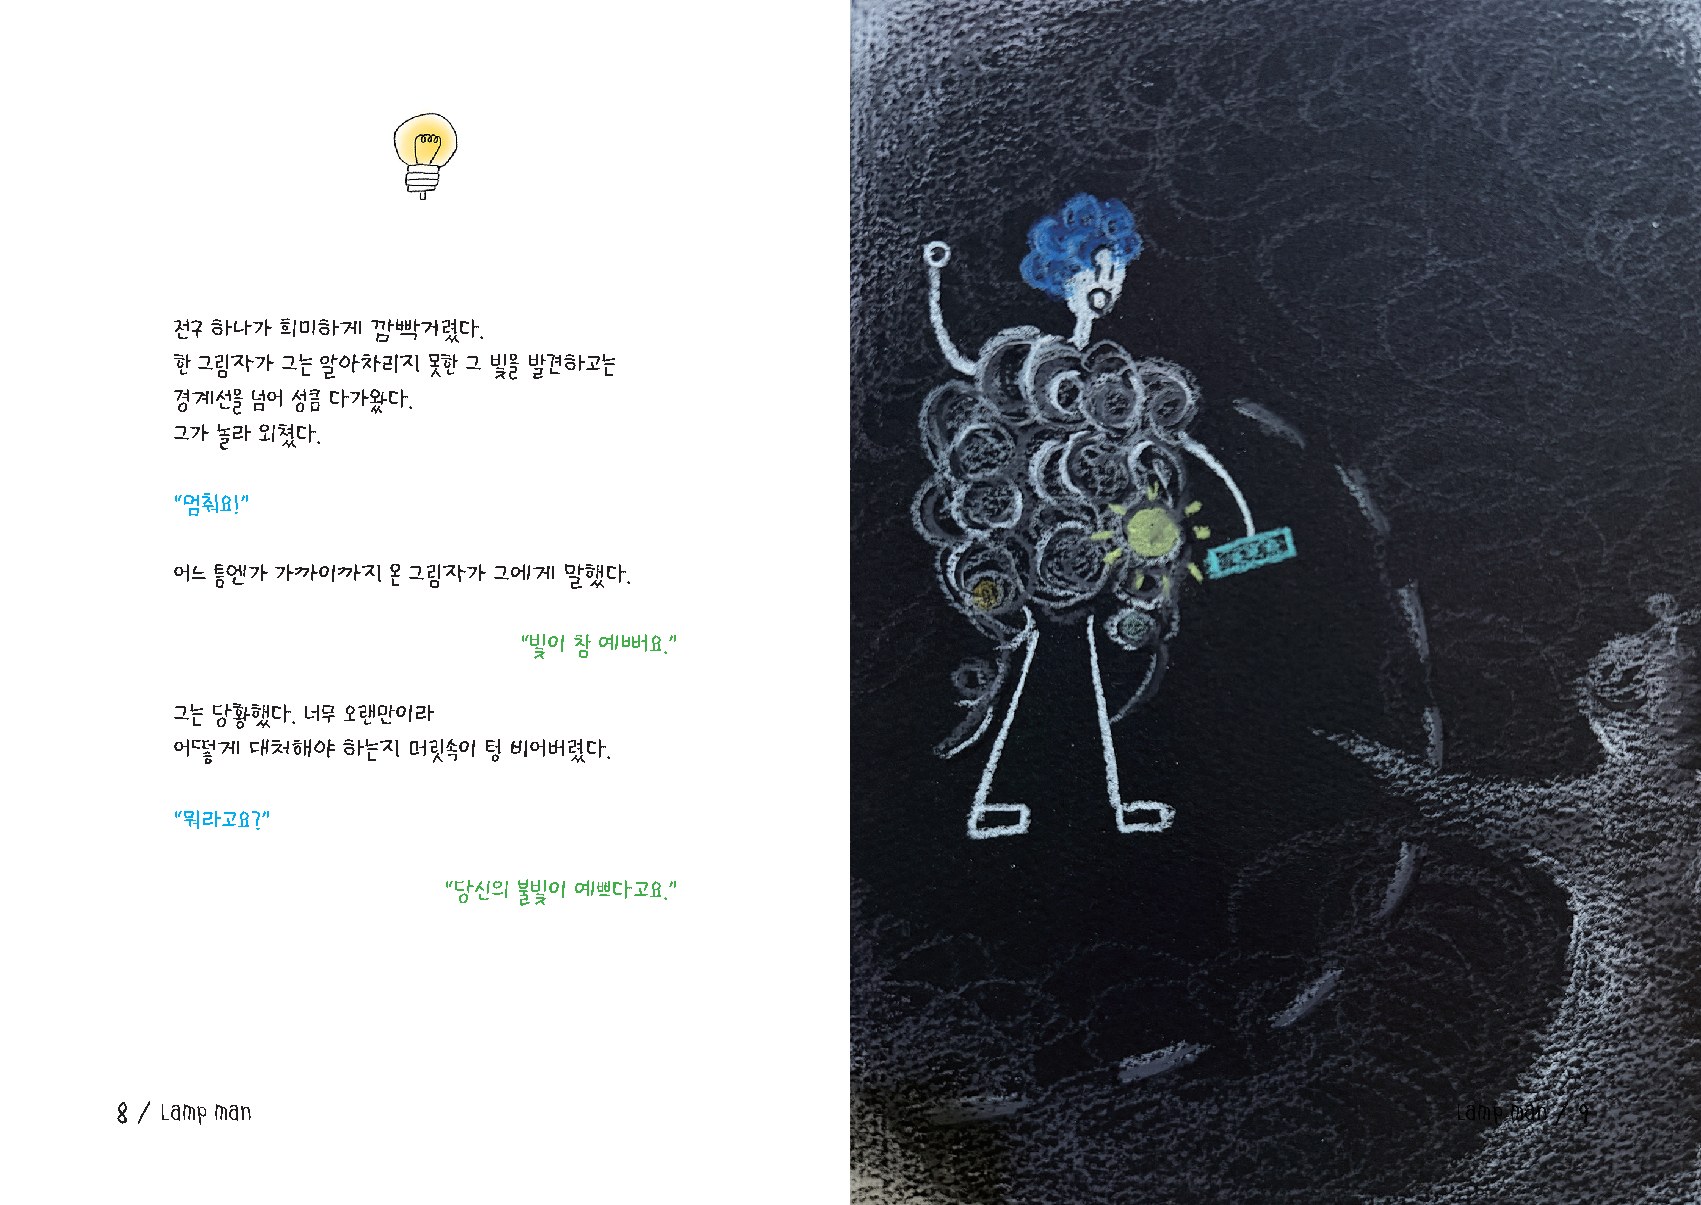 전구 하나가 희미하게 깜빡거렸다.
한 그림자가 그는 알아차리지 못한 그 빛을 발견하고는
경계선을 넘어 성큼 다가왔다.
그가 놀라 외쳤다.
“멈춰요!”
어느 틈엔가 가까이까지 온 그림자가 그에게 말했다.
“빛이 참 예뻐요.”
그는 당황했다. 너무 오랜만이라
어떻게 대처해야 하는지 머릿속이 텅 비어버렸다.
“뭐라고요?”
“당신의 불빛이 예쁘다고요.”
8 / Lamp man
Lamp man / 9